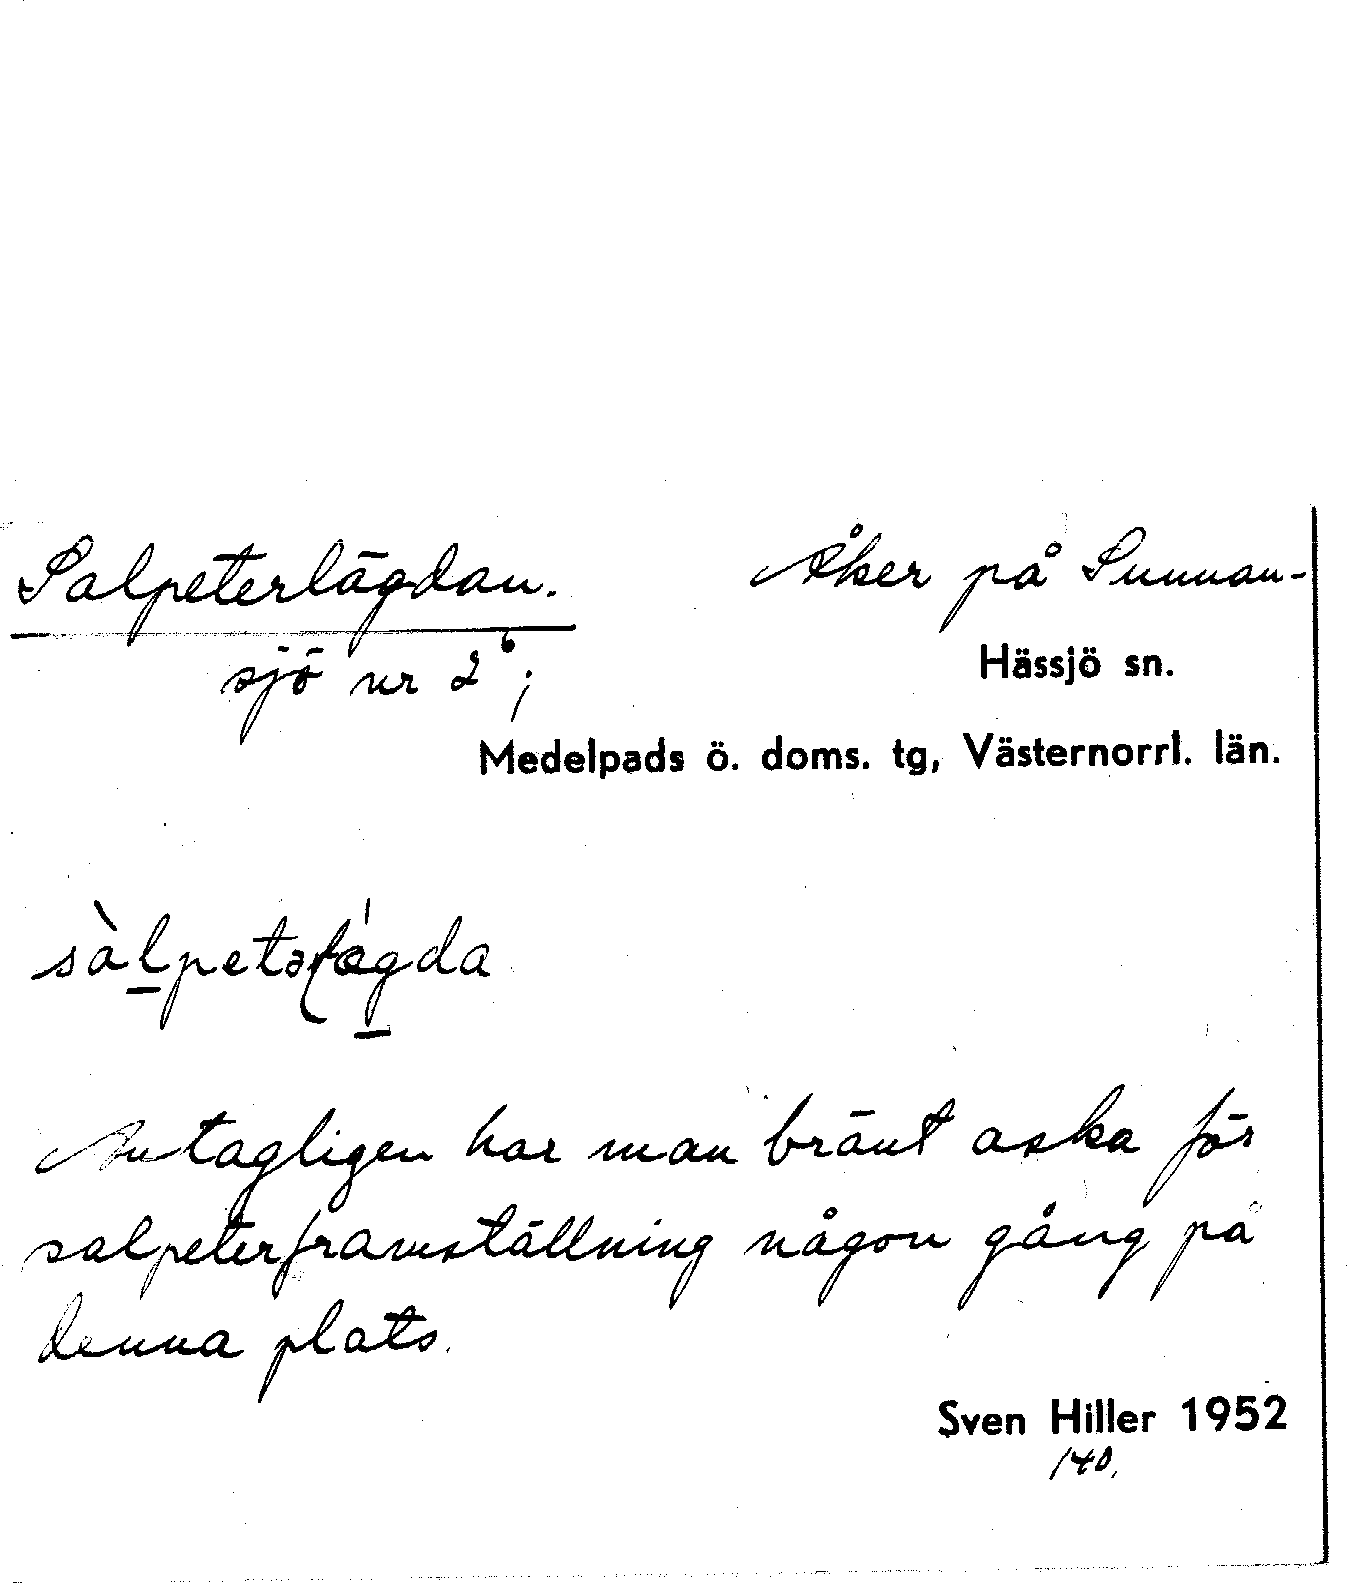 Salpeterlägdan. Åker på Sunnan-
Hässjö sn.
sjö nr 2⁶;
Medelpads ö. doms. tg, Västernorrl. län.
Antagligen har man bränt aska för
salpeterframställning någon gång på
denna plats.
Sven Hiller 1952
140.